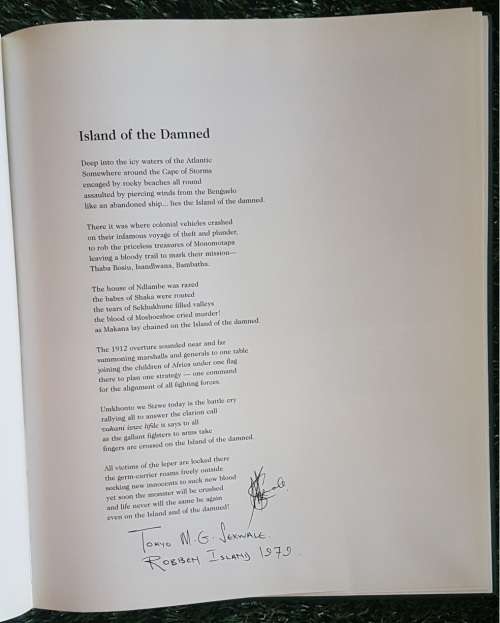 Island of the Damned
Deep into the icy waters of the Atlantic
Somewhere around the Cape of Storms
encaged by rocky beaches all round
assaulted by piercing winds from the Benguelo
like an abandoned ship... lies the Island of the damned.
There it was where colonial vehicles crashed
on their infamous voyage of theft and plunder,
to rob the priceless treasures of Monomotapa
leaving a bloody trail to mark their mission—
Thaba Bosiu, Isandlwana, Bambatha.
The house of Ndlambe was razed
the babes of Shaka were routed
the tears of Sekhukhune filled valleys
the blood of Moshoeshoe cried murder!
as Makana lay chained on the Island of the damned.
The 1912 overture sounded near and far
summoning marshalls and generals to one table
joining the children of Africa under one flag
there to plan one strategy — one command
for the alignment of all fighting forces.
Umkhonto we Sizwe today is the battle cry
rallying all to answer the clarion call
vukani iswe lifile it says to all
as the gallant fighters to arms take
fingers are crossed on the Island of the damned.
All victims of the leper are locked there
the germ-carrier roams freely outside
seeking new innocents to suck new blood
yet soon the monster will be crushed
and life never will the same be again
even on the Island and of the damned!
Tokyo M.G. Sexwale.
Robben Island 1979.